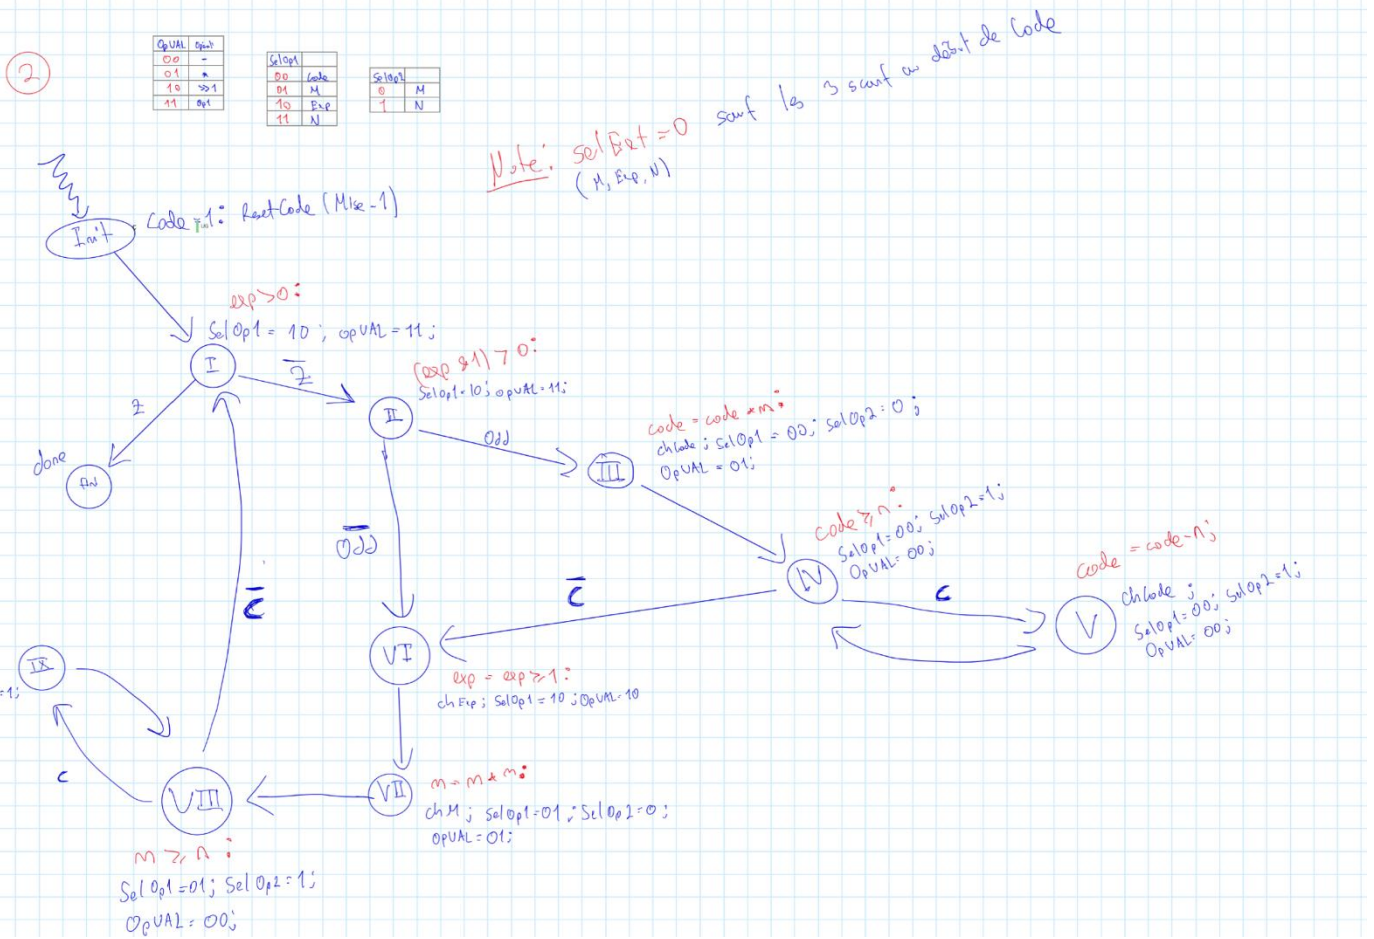 2
OpVAL Opérat°
00 -
01 *
10 >>1
11 Op1
SelOp1
00 Code
01 M
10 Exp
11 N
SelOp2
0 M
1 N
Note: selExt=0 sauf les 3 au début de Code
(M, Exp, N)
Init
Code = 1: ResetCode (Mise-1)
exp>0:
SelOp1 = 10; opVAL = 11;
I
Z
Z̅
done
(exp &1) > 0:
SelOp1=10; opVAL=11;
II
Odd
O̅d̅d̅
code = code * m:
chCode; SelOp1 = 00; SelOp2 = 0;
OpVAL = 01;
III
code ⩾ n:
SelOp1=00; SelOp2=1;
OpVAL=00;
IV
C
C̅
code = code-n;
chCode;
SelOp1=00; SelOp2=1;
OpVAL=00;
V
VI
exp = exp ⩾ 1:
chExp; SelOp1 = 10; OpVAL=10
C̅
IX
=1;
C
VII
m = m * m:
chM; SelOp1=01; SelOp2=0;
OpVAL=01;
VIII
m ⩾ n:
SelOp1=01; SelOp2=1;
OpVAL=00;